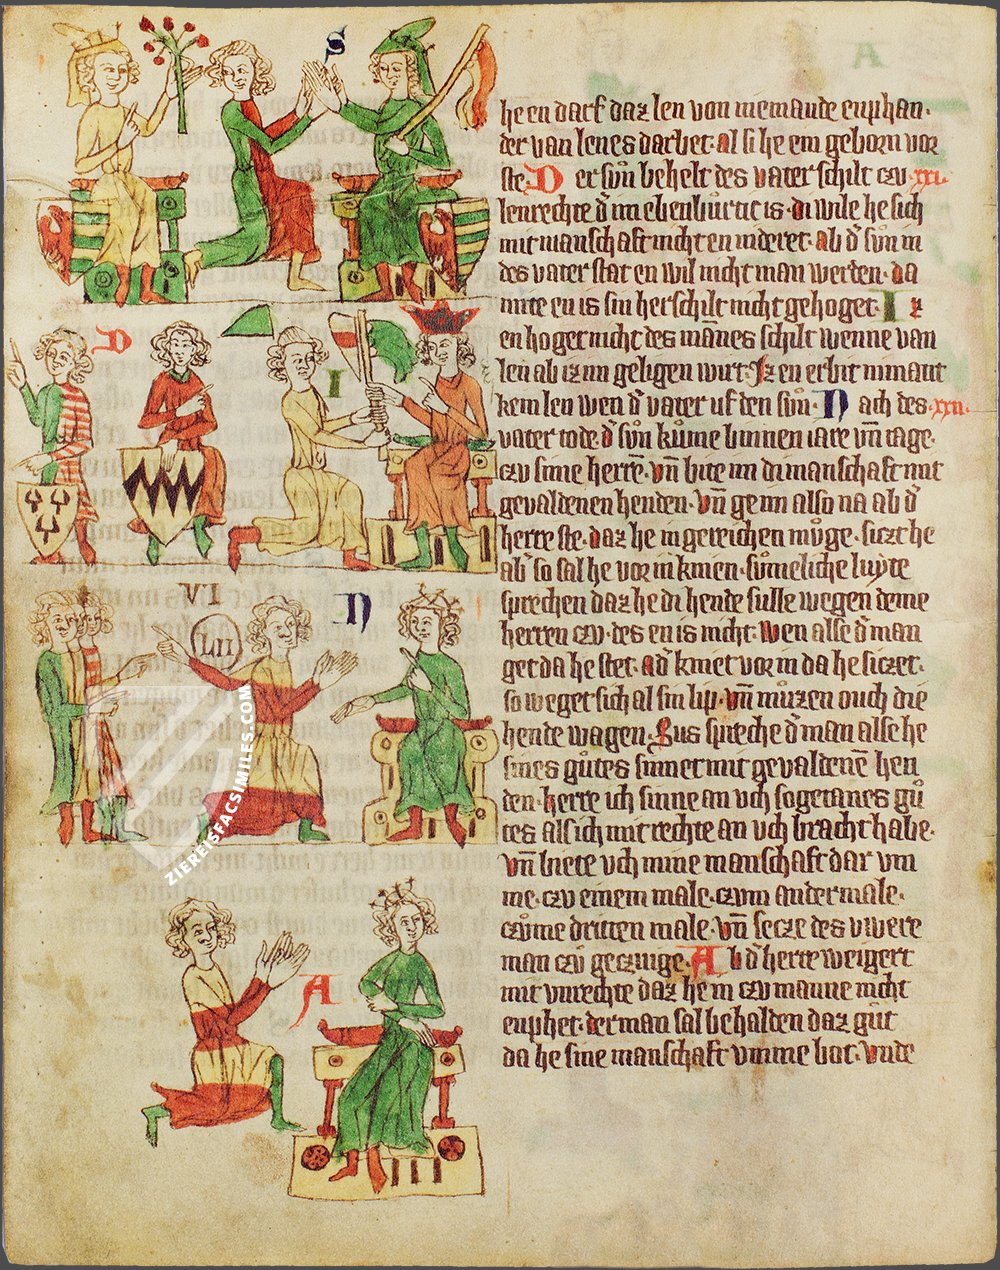 S
D
I
VI
LII
N
A
A
he en darf daz len von niemande enphan·
der van lenes darbet· al si he em geborn vor
ste. D er sůn behelt des vater schilt czu ·xxi·
lenrechte d' im ebenburtic is· di wile he sich
mit manschaft nicht en nideret· ab d' sůn in
des vater stat en wil nicht man werten· da
mite en is sin herschilt nicht gehoget· I z
en hoget nicht des mānes schilt wenne van
len ab iz im geligen wirt· Iz en erbit nimant
kein len wen d' vater uf den sůn· N ach des ·xxii·
vater tode· d' sůn kůme binnen iare vn̄ tage·
czu sime herrē· vn̄ bite im di manschaft mit
gevaldenen henden· vn̄ ge im also na ab d'
herre ste· daz he in gereichen můge· siczt he
ab' so sal he vor in knien· sůmeliche luyte
sprechen daz he di hende sulle wegen deme
herren czu· des en is nicht· wen alse d' man
get da he stet· ad' kniet vor in da he siczet·
so weget sich al sin lip· vn̄ můzen ouch die
hende wagen· Sus spreche d' man alse he
sines gůtes sinnet mit gevaldenē hen
den· herre ich sinne an vch sogetanes gů
tes als ich mit rechte an vch bracht habe·
vn̄ biete vch mine manschaft dar vm
me· czu einem male· czum andermale·
czůme dritten male· vn̄ secze des uwere
man czů geczuige· A b d' herre weigert
mit vnrechte daz he in czu manne nicht
enphet· der man sal behalden daz gůt
da he sine manschaft vmme bot· vnde
ZIEREISFACSIMILES.COM